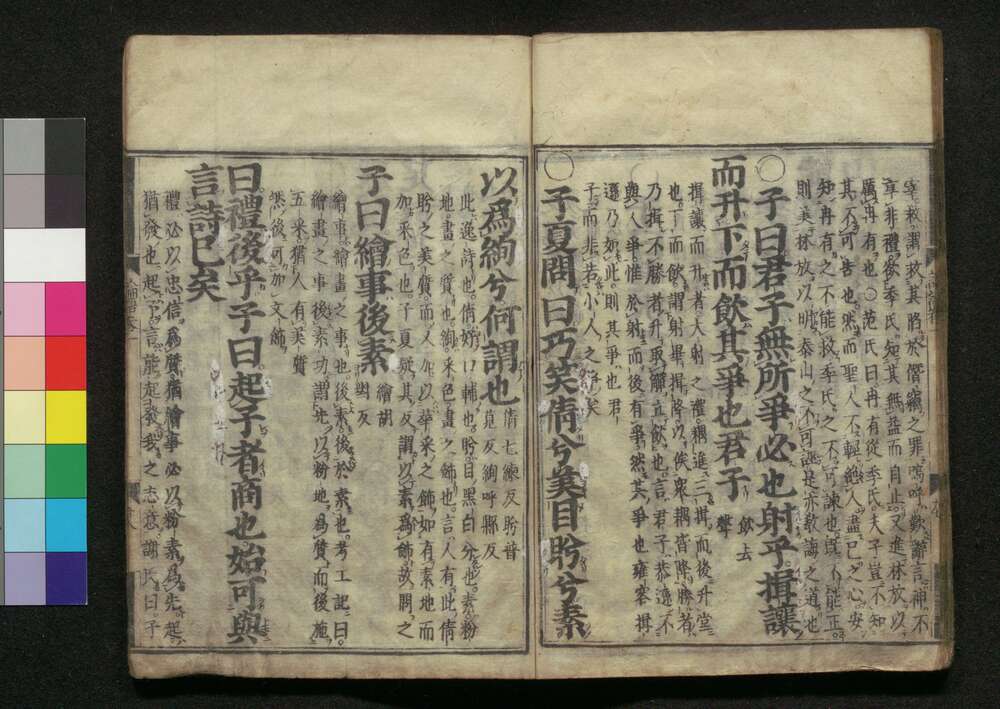 宰救謂救其陷於僣竊之罪嗚呼歎辭言神不
享非禮欲季氏知其無益而自止又進林放以
厲冉有也○范氏曰冉有從季氏夫子豈不知
其不可告也然而聖人不輕絶人盡己之心安
知冉有之不能救季氏之不可諫也旣不能正
則美林放以明泰山之不可誣是亦敎誨之道也
○子曰君子無所爭必也射乎揖讓
而升下而飮其爭也君子 飮去聲
揖讓而升者大射之禮耦進三揖而後升堂
也下而飮謂射畢揖降以俟衆耦皆降勝者
乃揖不勝者升取觶立飮也言君子恭遜不
與人爭惟於射而後有爭然其爭也雍容揖
遜乃如此則其爭也君
子而非若小人之爭矣
○子夏問曰巧笑倩兮美目盼兮素
以爲絢兮何謂也 倩七練反盼普莧反絢呼縣反
此逸詩也倩好口輔也盼目黑白分也素粉
地畫之質也絢采色畫之飾也言人有此倩
盼之美質而又加以華采之飾如有素地而
加采色也子夏疑其反謂以素爲飾故問之
子曰繪事後素 繪胡對反
繪事繪畫之事也後素後於素也考工記曰
繪畫之事後素功謂先以粉地爲質而後施
五采猶人有美質
然後可加文飾
曰禮後乎子曰起予者商也始可與
言詩已矣
禮必以忠信爲質猶繪事必以粉素爲先起
猶發也起予言能起發我之志意謝氏曰子